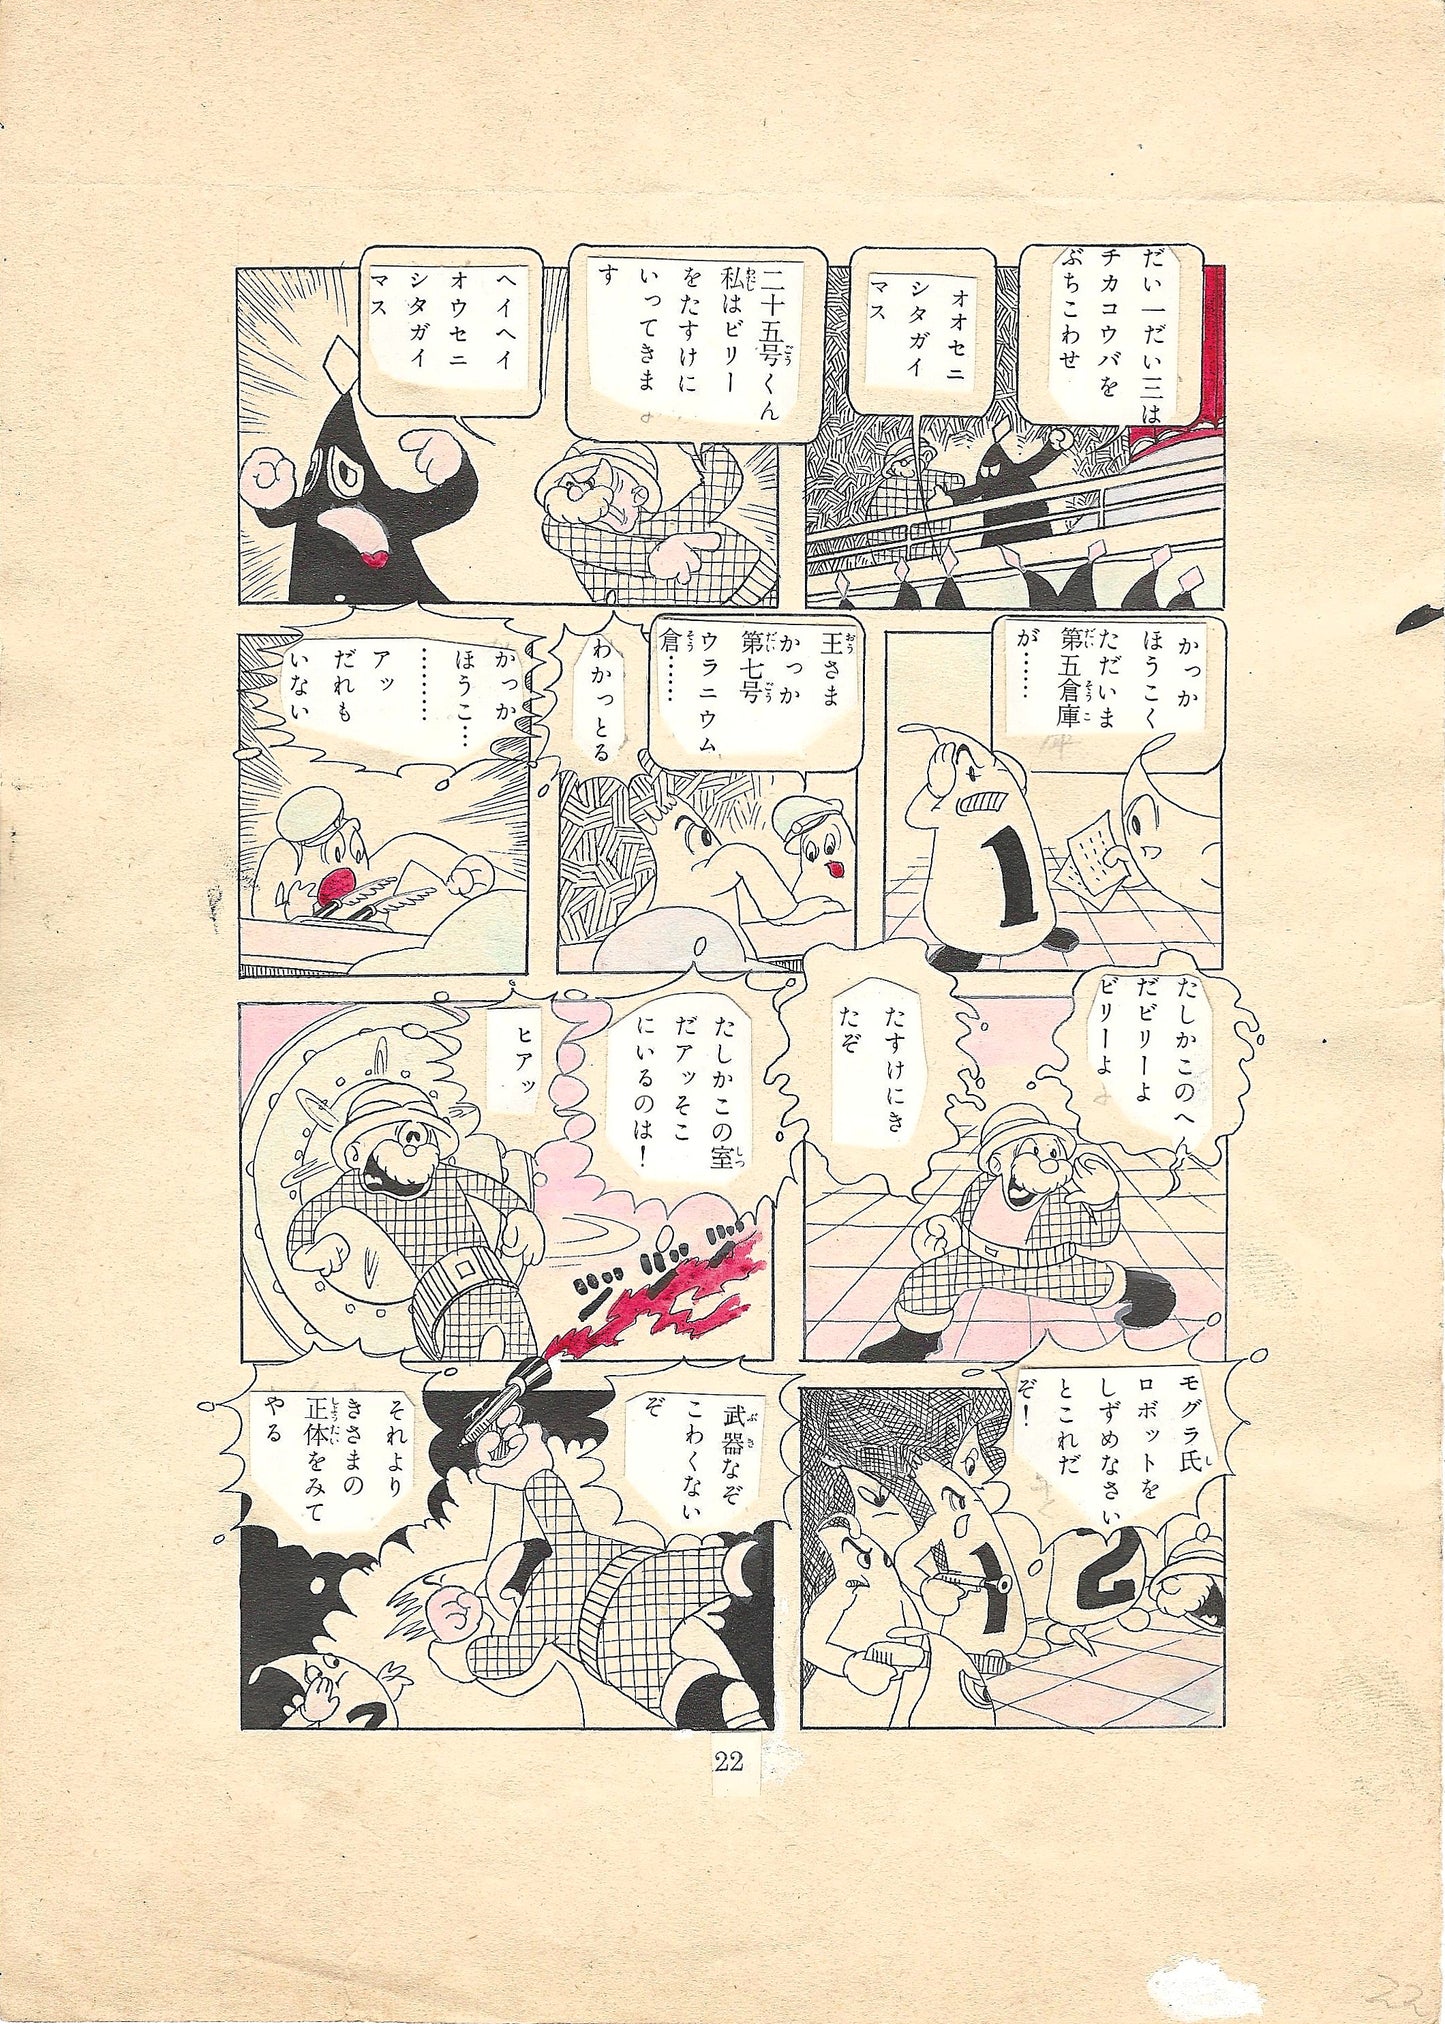 だい一だい三は
チカコウバを
ぶちこわせ
オオセニ
シタガイ
マス
二十五号くん
私はビリー
をたすけに
いってきま
す
ヘイヘイ
オウセニ
シタガイ
マス
かっか
ほうこく
ただいま
第五倉庫
が……
王さま
かっか
第七号
ウラニウム
倉……
わかっとる
かっか
ほうこ…
………
アッ
だれも
いない
たしかこのへん
だビリーよ
ビリーよ
たすけにき
たぞ
たしかこの室
だアッそこ
にいるのは！
ヒアッ
モグラ氏
ロボットを
しずめなさい
とこれだ
ぞ！
武器なぞ
こわくない
ぞ
それより
きさまの
正体をみて
やる
1
1
2
2
22
22